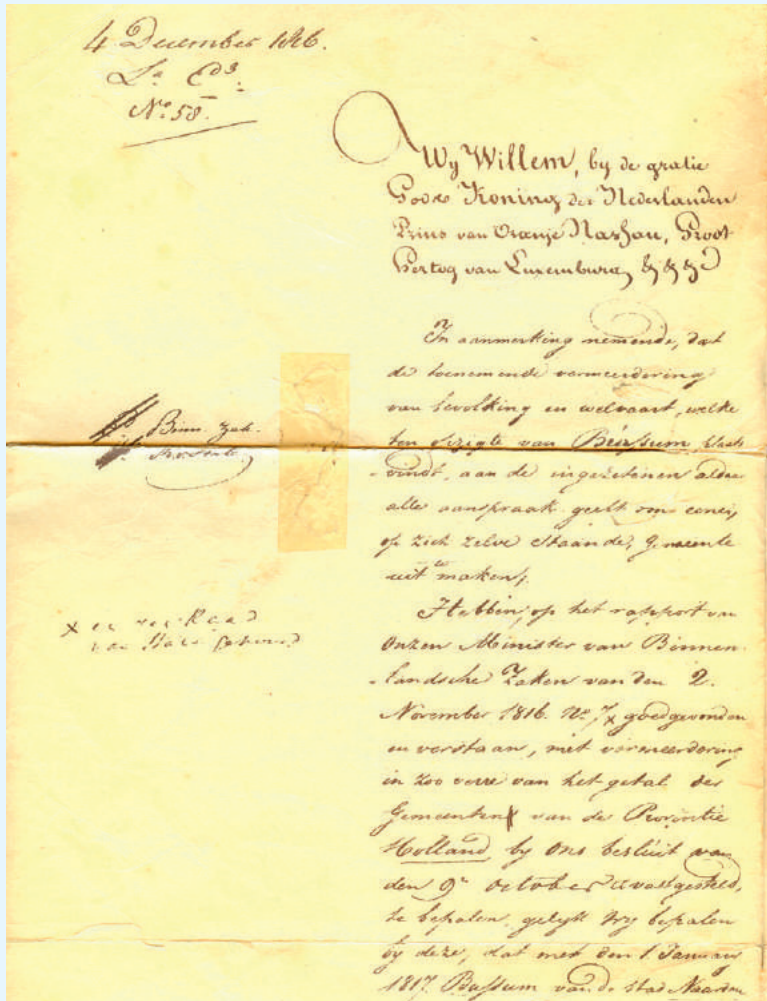 4 December 1816.
No. 58.
Wy Willem, by de gratie
Gods Koning der Nederlanden
Prins van Oranje Nassau, Groot
Hertog van Luxemburg, &&&
In aanmerking nemende, dat
de toenemende vermeerdering
van bevolking en welvaart, welke
ten opzigte van Bussum plaats
vindt, aan de ingezetenen aldaar
alle aanspraak geeft om eene,
op zich zelve staande, gemeente
uit te maken;
Binn. Zak.
Hebben, op het rapport van
Onzen Minister van Binnen
landsche Zaken van den 2.
x en den Raad
van State gehoord
November 1816. No. 7 x goedgevonden
en verstaan, met vermeerdering
in zoo verre van het getal der
Gemeenten van de Provintie
Holland by Ons besluit van
den 9n October vastgesteld,
te bepalen, gelyk Wy bepalen
by deze, dat met den 1 January
1817. Bussum van de stad Naarden